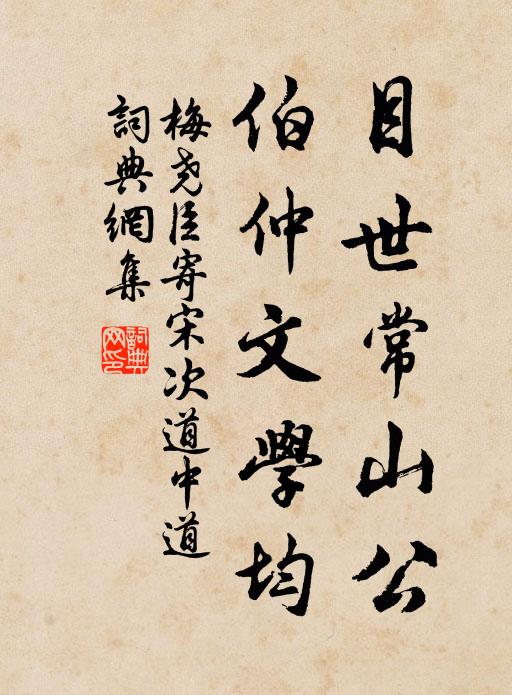 目世常山公
伯仲文學均
梅堯臣寄宋次道中道
詞典網集
詞典網印